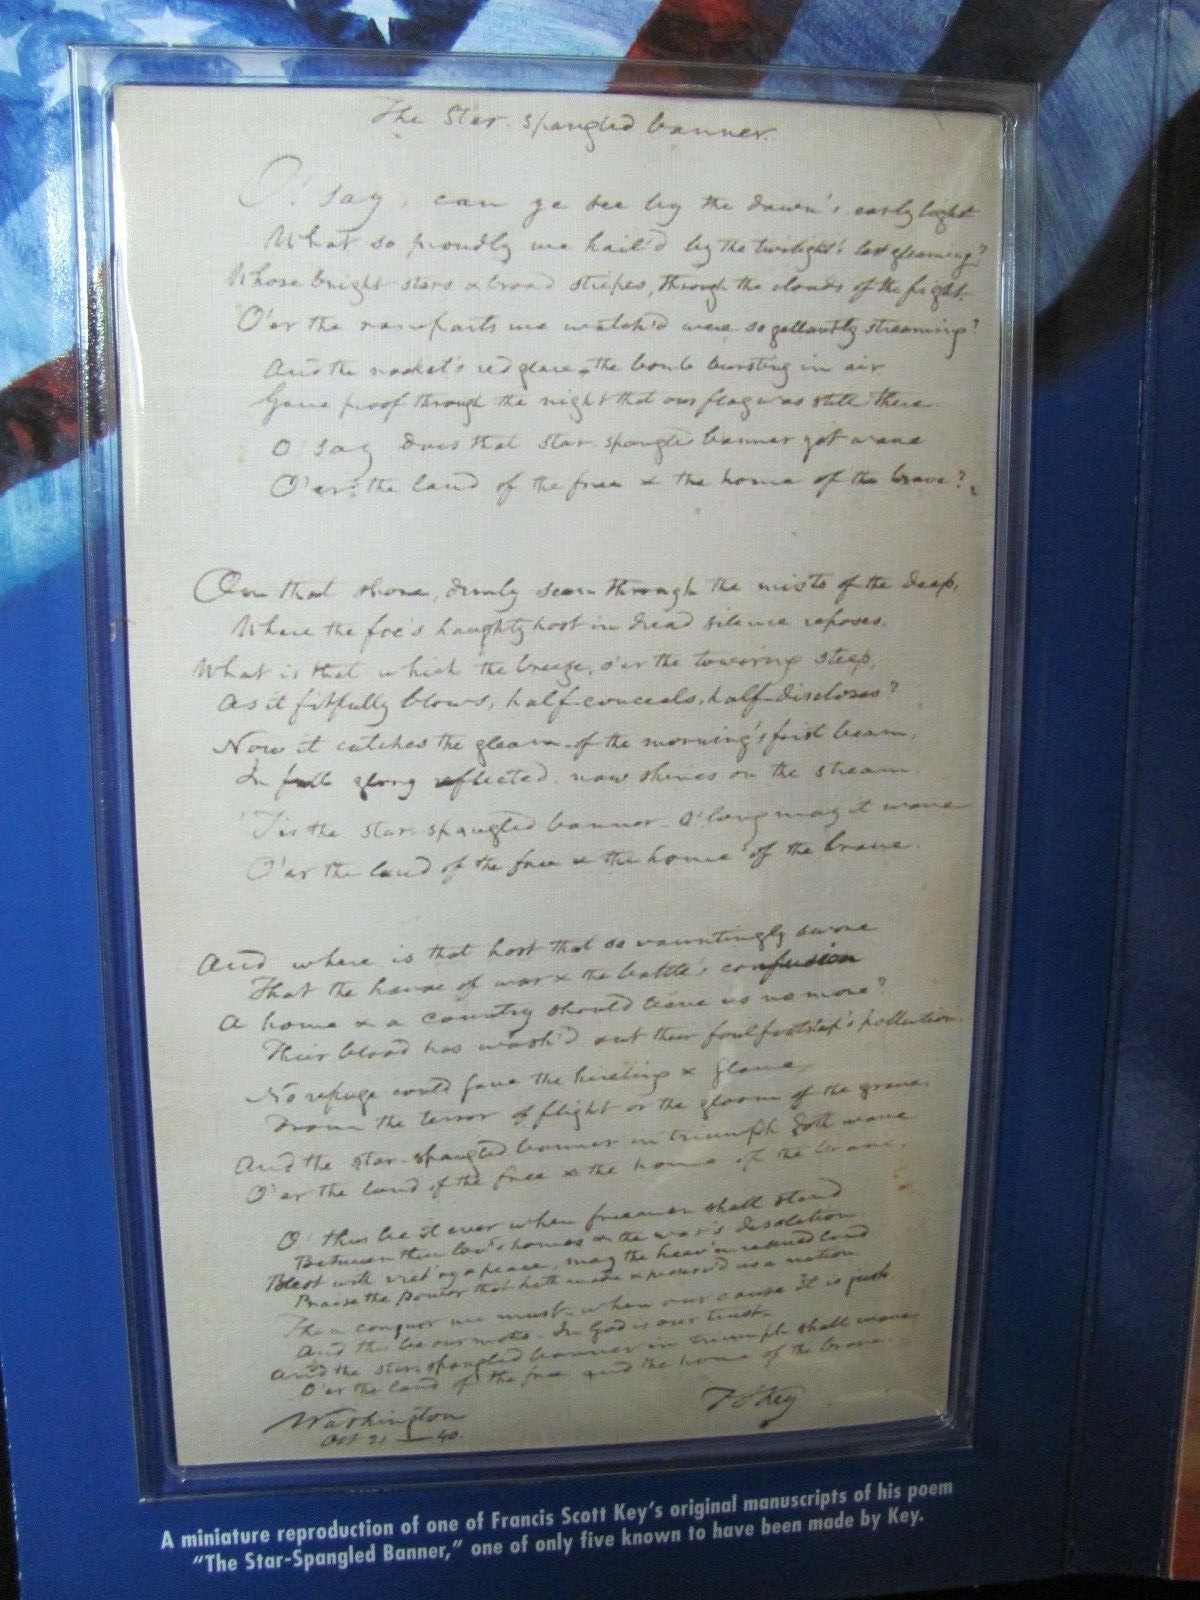 The Star-spangled banner.
O! say, can ye see by the dawn's early light
What so proudly we hail'd by the twilight's last gleaming?
Whose bright stars & broad stripes, through the clouds of the fight,
O'er the ramparts we watch'd were so gallantly streaming?
And the rocket's red glare, the bomb bursting in air
Gave proof through the night that our flag was still there.
O! say does that star-spangled banner yet wave
O'er the land of the free & the home of the brave?
On that shore, dimly seen through the mists of the deep,
Where the foe's haughty host in dread silence reposes,
What is that which the breeze, o'er the towering steep,
As it fitfully blows, half-conceals, half-discloses?
Now it catches the gleam of the morning's first beam,
In full glory reflected now shines on the stream.
'Tis the star-spangled banner - O! long may it wave
O'er the land of the free & the home of the brave.
And where is that host that so vauntingly swore
That the havoc of war & the battle's confusion
A home & a country should leave us no more?
Their blood has wash'd out their foul footstep's pollution.
No refuge could save the hireling & slave
From the terror of flight or the gloom of the grave,
And the star-spangled banner in triumph doth wave
O'er the land of the free & the home of the brave.
O! thus be it ever when freemen shall stand
Between their lov'd homes & the war's desolation
Blest with vict'ry & peace, may the heav'n rescued land
Praise the Power that hath made & preserv'd us a nation.
Then conquer we must - when our cause it is just
And this be our motto - In God is our trust -
And the star-spangled banner in triumph shall wave
O'er the land of the free and the home of the brave.
Washington
Oct 21 - 40.
F S Key
A miniature reproduction of one of Francis Scott Key's original manuscripts of his poem
"The Star-Spangled Banner," one of only five known to have been made by Key.